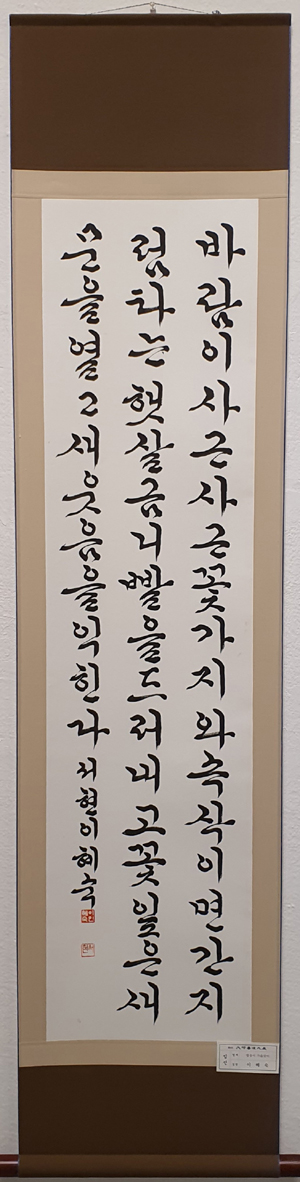 바람이사근사근꽃가지와속삭이면간지
럼타는햇살금니빨을드러내고꽃잎은새
문을열고새웃음을익힌다 서현이혜숙
입선
이 혜 숙